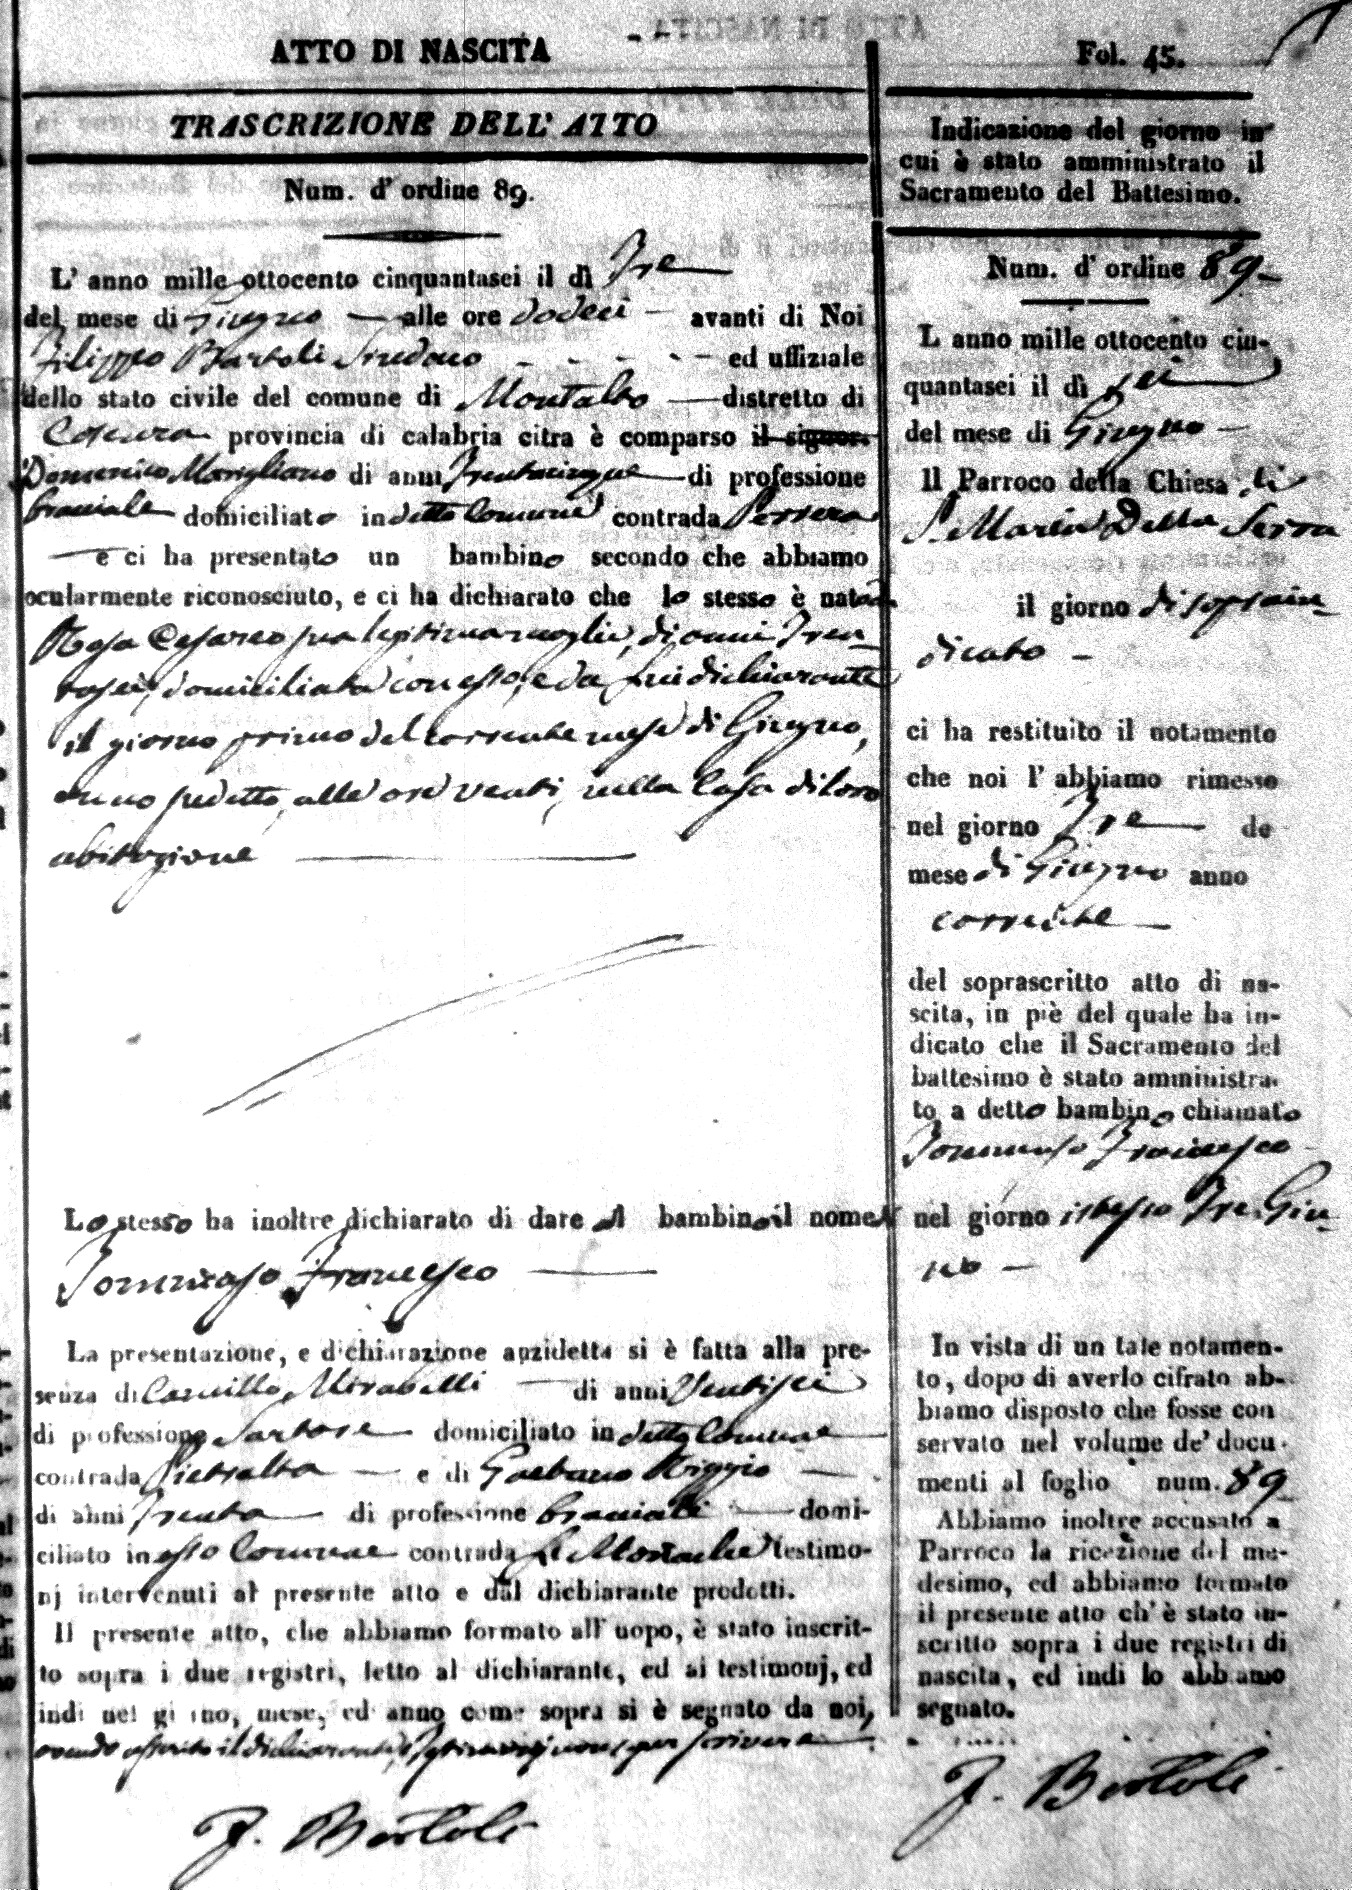 ATTO DI NASCITA
TRASCRIZIONE DELL' ATTO
Num. d' ordine 89.
L' anno mille ottocento cinquantasei il dì Tre
del mese di Giugno — alle ore dodeci — avanti di Noi
Filippo Bartoli Sindaco ed uffiziale
dello stato civile del comune di Montalto — distretto di
Cosenza provincia di calabria citra è comparso il signor.
Domenico Marigliano di anni Trentacinque — di professione
bracciale domiciliato in detto Comune contrada
— e ci ha presentato un bambino secondo che abbiamo
ocularmente riconosciuto, e ci ha dichiarato che lo stesso è nato da
Rosa Cesareo sua legittima moglie, di anni Tren-
tasei, domiciliata con esso, e da lui dichiarante
il giorno primo del corrente mese di Giugno,
anno sudetto, alle ore venti, nella Casa di loro
abitazione —
Lo stesso ha inoltre dichiarato di dare al bambino il nome di
Tommaso Francesco —
La presentazione, e dichiarazione anzidetta si è fatta alla pre-
senza di Camillo Mirabelli — di anni Ventisei
di professione Sartore — domiciliato in detto Comune
contrada Pietralta — e di Gaetano Riggio —
di anni Trenta — di professione bracciale — domi-
ciliato in esso Comune contrada Le Monache testimo-
nj intervenuti al presente atto e dal dichiarante prodotti.
Il presente atto, che abbiamo formato all' uopo, è stato inscrit-
to sopra i due registri, letto al dichiarante, ed ai testimonj, ed
indi nel giorno, mese, ed anno come sopra si è segnato da noi,
avendo asserito il dichiarante, e Testimonj non saper scrivere —
F. Bartoli
Fol. 45.
Indicazione del giorno in
cui è stato amministrato il
Sacramento del Battesimo.
Num. d' ordine 89-
L anno mille ottocento cin-
quantasei il dì sei
del mese di Giugno —
Il Parroco della Chiesa di
S. Maria Della Serra
il giorno di soprain-
dicato -
ci ha restituito il notamento
che noi l' abbiamo rimesso
nel giorno Tre — de
mese di Giugno anno
corrente —
del soprascritto atto di na-
scita, in piè del quale ha in-
dicato che il Sacramento del
battesimo è stato amministra-
to a detto bambino chiamato
Tommaso Francesco
nel giorno istesso Tre Giu-
no —
In vista di un tale notamen-
to, dopo di averlo cifrato ab-
biamo disposto che fosse con
servato nel volume de' docu-
menti al foglio num. 89
Abbiamo inoltre accusato a
Parroco la ricezione del me-
desimo, ed abbiamo formato
il presente atto ch' è stato in-
scritto sopra i due registri di
nascita, ed indi lo abbiamo
segnato.
F. Bartoli